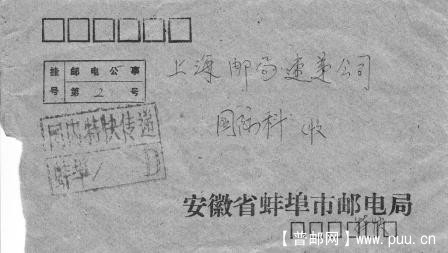 挂号
邮电公事
第2号
上海邮局速递公司
国内科 收
国内特快传递
蚌埠1 D
安徽省蚌埠市邮电局
【普邮网】www.puu.cn